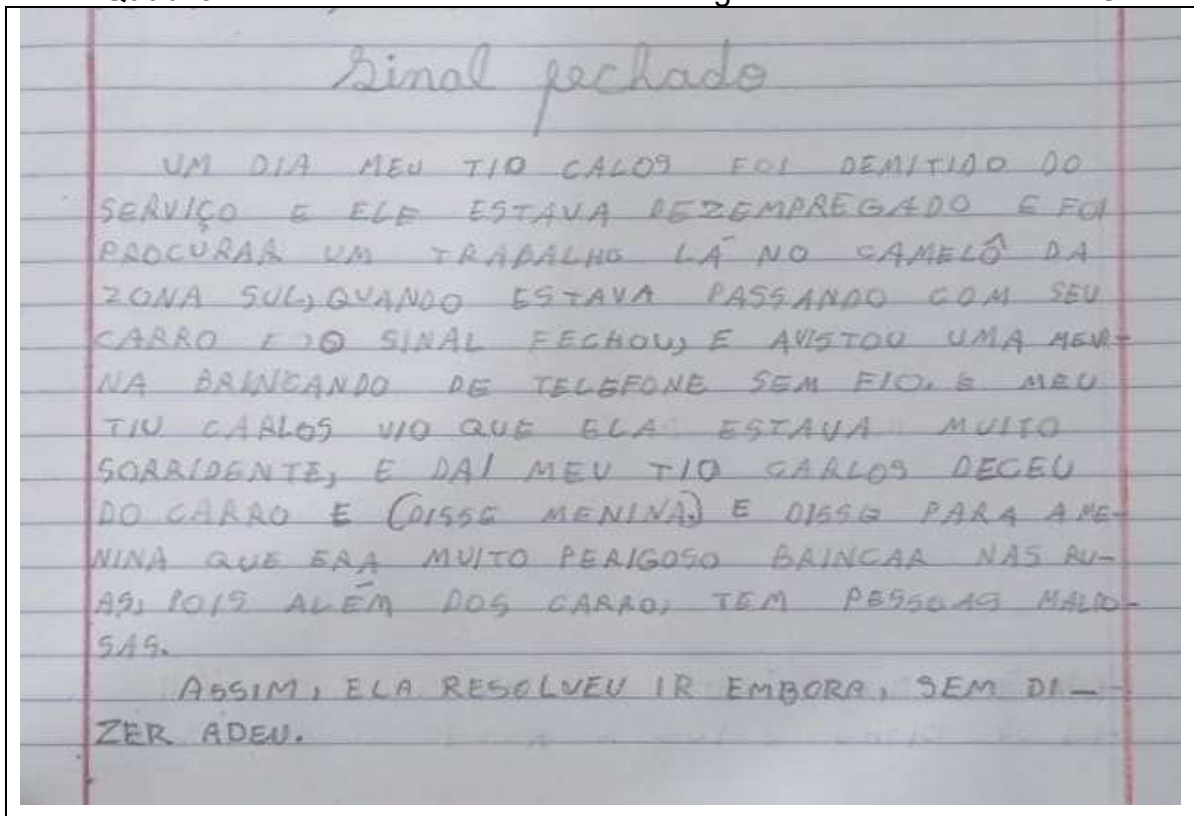 Sinal fechado
UM DIA MEU TIO CALOS FOI DEMITIDO DO
SERVIÇO E ELE ESTAVA DEZEMPREGADO E FOI
PROCURAR UM TRABALHO LÁ NO CAMELÔ DA
ZONA SUL, QUANDO ESTAVA PASSANDO COM SEU
CARRO O SINAL FECHOU, E AVISTOU UMA MENI-
NA BRINCANDO DE TELEFONE SEM FIO. E MEU
TIU CARLOS VIO QUE ELA ESTAVA MUITO
SORRIDENTE, E DAI MEU TIO CARLOS DECEU
DO CARRO E (DISSE MENINA) E DISSE PARA A ME-
NINA QUE ERA MUITO PERIGOSO BRINCAR NAS RU-
AS, POIS ALÉM DOS CARRO, TEM PESSOAS MALDO-
SAS.
ASSIM, ELA RESOLVEU IR EMBORA, SEM DI-
ZER ADEU.